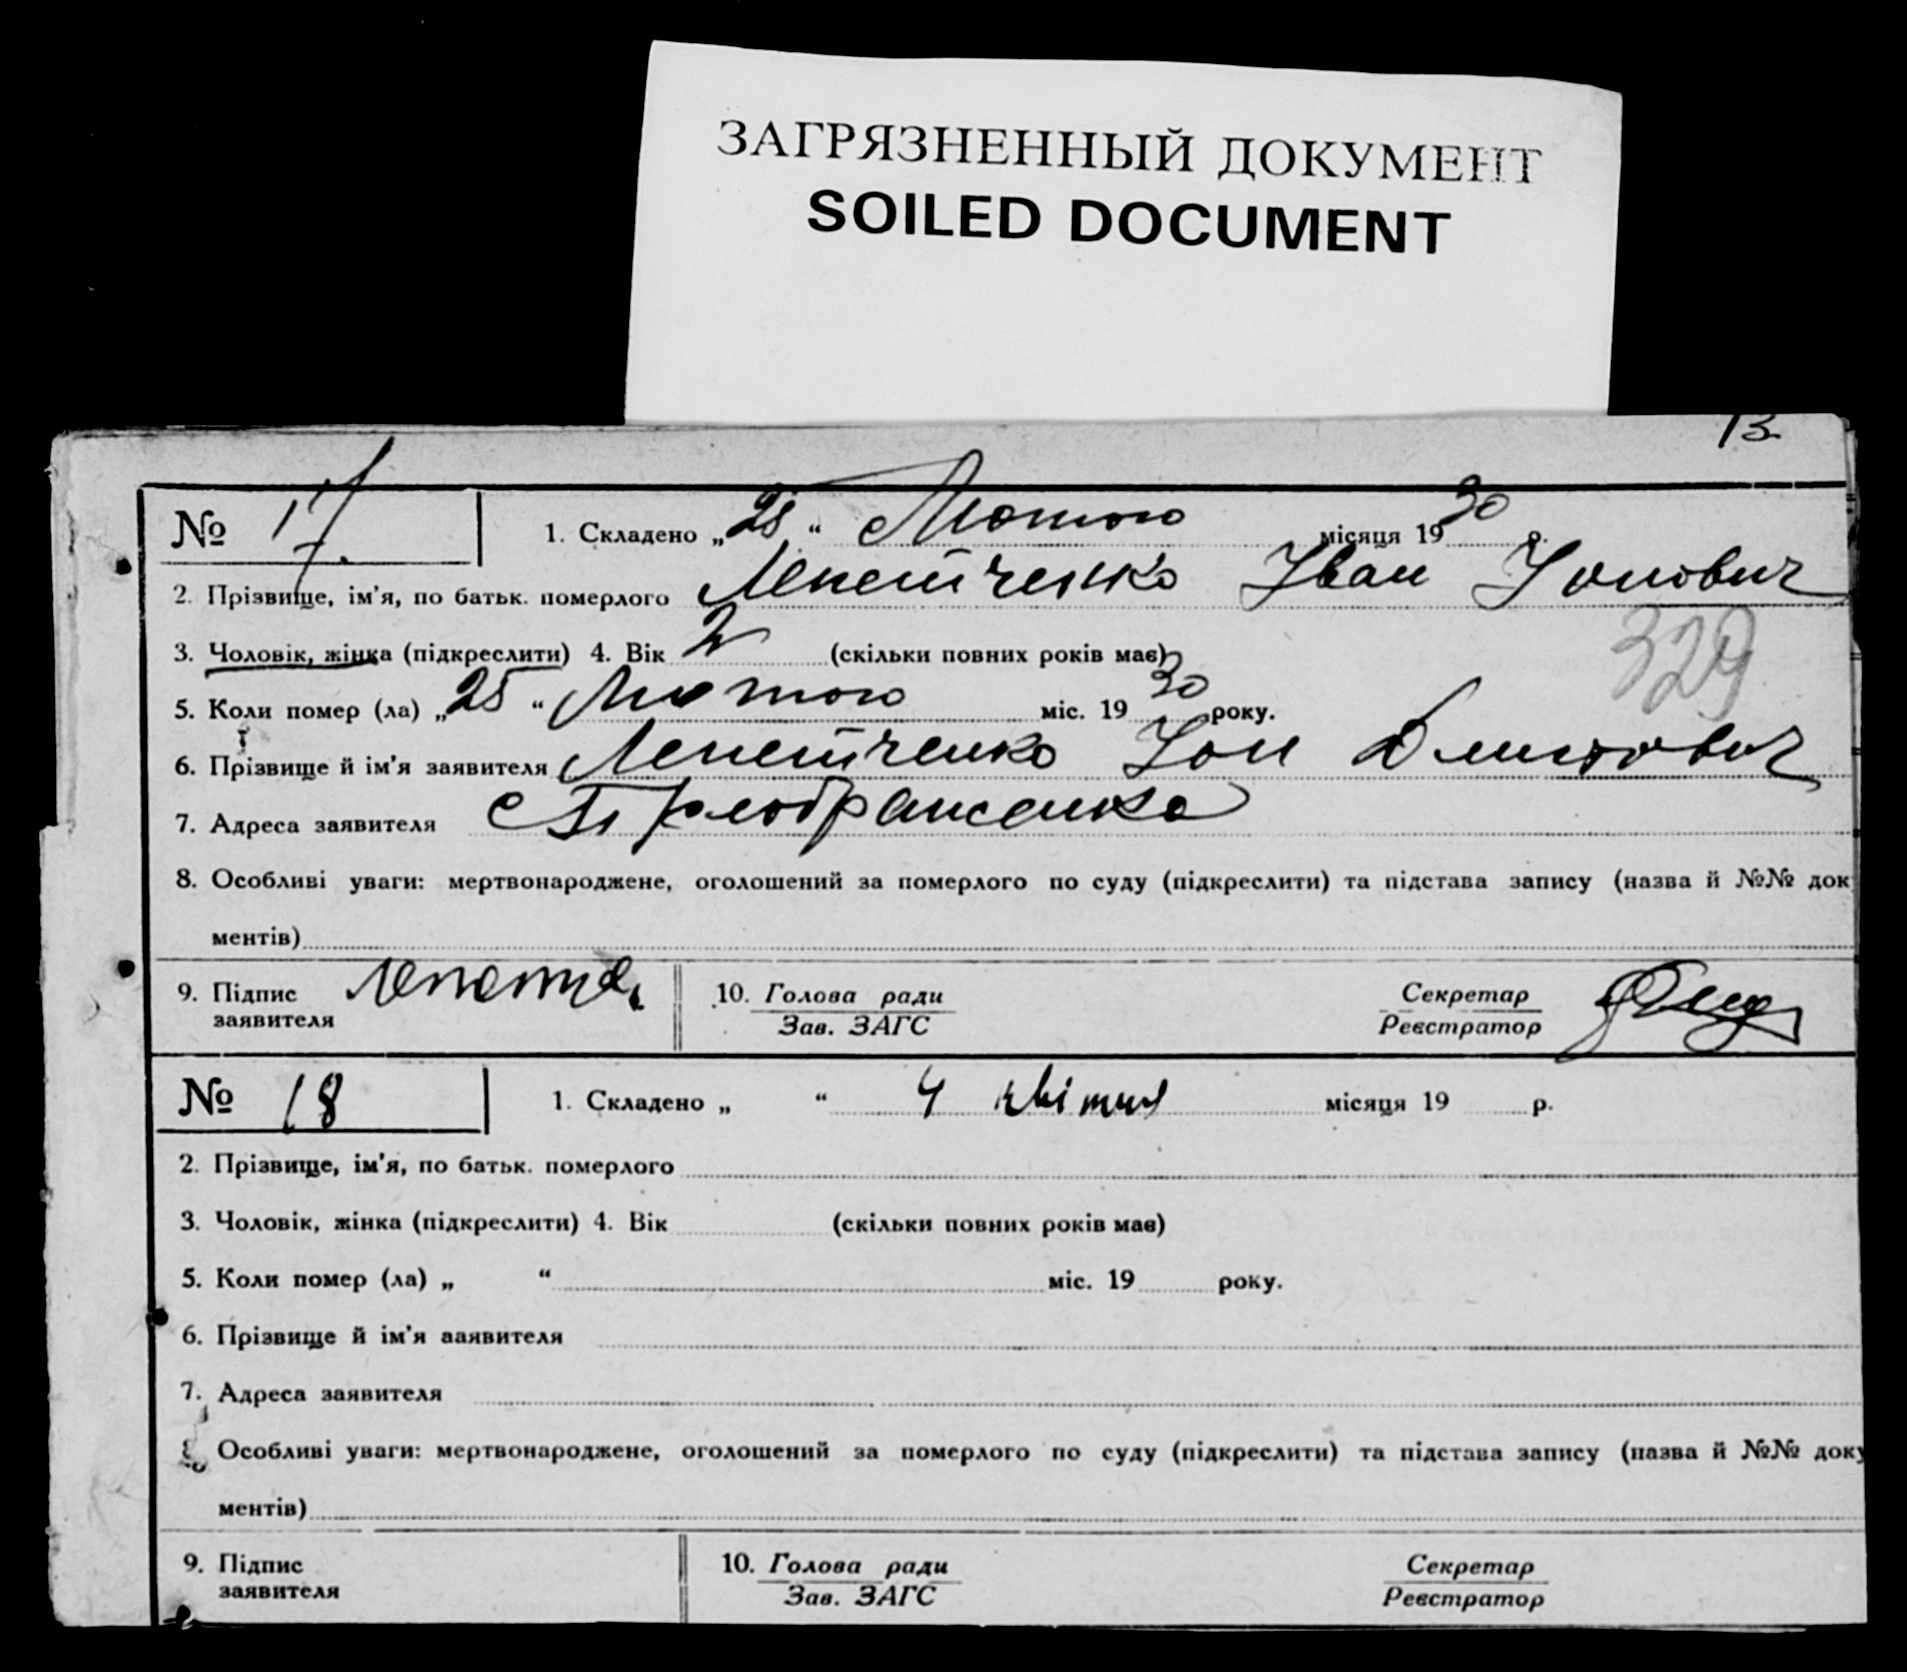 ЗАГРЯЗНЕННЫЙ ДОКУМЕНТ
SOILED DOCUMENT
13
№ 17. 1. Складено „25“ Лютого місяця 1930 р.
2. Прізвище, ім'я, по батьк. померлого Лепетченко Іван Іонович
3. Чоловік, жінка (підкреслити) 4. Вік 2 (скільки повних років має)
329
5. Коли помер (ла) „25“ Лютого міс. 1930 року.
6. Прізвище й ім'я заявителя Лепетченко Іон
7. Адреса заявителя с Преображенка
8. Особливі уваги: мертвонароджене, оголошений за померлого по суду (підкреслити) та підстава запису (назва й №№ док
ментів)
9. Підпис заявителя 10. Голова ради Секретар
Зав. ЗАГС Реєстратор
№ 18 1. Складено „ “ 4 квітня місяця 19 р.
2. Прізвище, ім'я, по батьк. померлого
3. Чоловік, жінка (підкреслити) 4. Вік (скільки повних років має)
5. Коли помер (ла) „ “ міс. 19 року.
6. Прізвище й ім'я заявителя
7. Адреса заявителя
Особливі уваги: мертвонароджене, оголошений за померлого по суду (підкреслити) та підстава запису (назва й №№ доку
ментів)
9. Підпис 10. Голова ради Секретар
заявителя Зав. ЗАГС Реєстратор